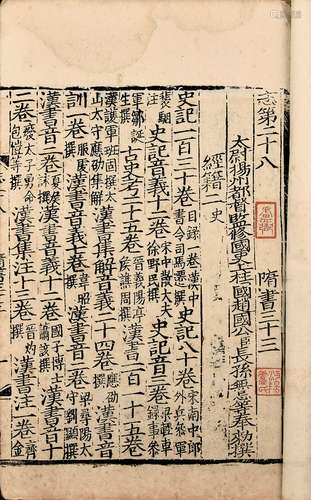 志第二十八　隋書三十三
太尉揚州都督監修國史上柱國趙國公臣長孫無忌等奉勑撰
經籍二史
史記一百三十卷目錄一卷漢中書令司馬遷撰史記八十卷宋南中郎外兵參軍
裴駰注史記音義十二卷宋中散大夫徐野民撰史記音三卷梁輕車錄事參
軍鄒誕生撰古史考二十五卷晉義陽亭侯譙周撰漢書一百一十五卷
漢護軍班固撰太山太守應劭集解漢書集解音義二十四卷應劭撰漢書音
訓一卷服虔撰漢書音義七卷韋昭撰漢書音二卷梁尋陽太守劉顯撰
漢書音二卷夏侯詠撰漢書音義十二卷國子博士蕭該撰漢書音十
二卷廢太子勇命包愷等撰漢書集注十三卷晉灼撰漢書注一卷齊金